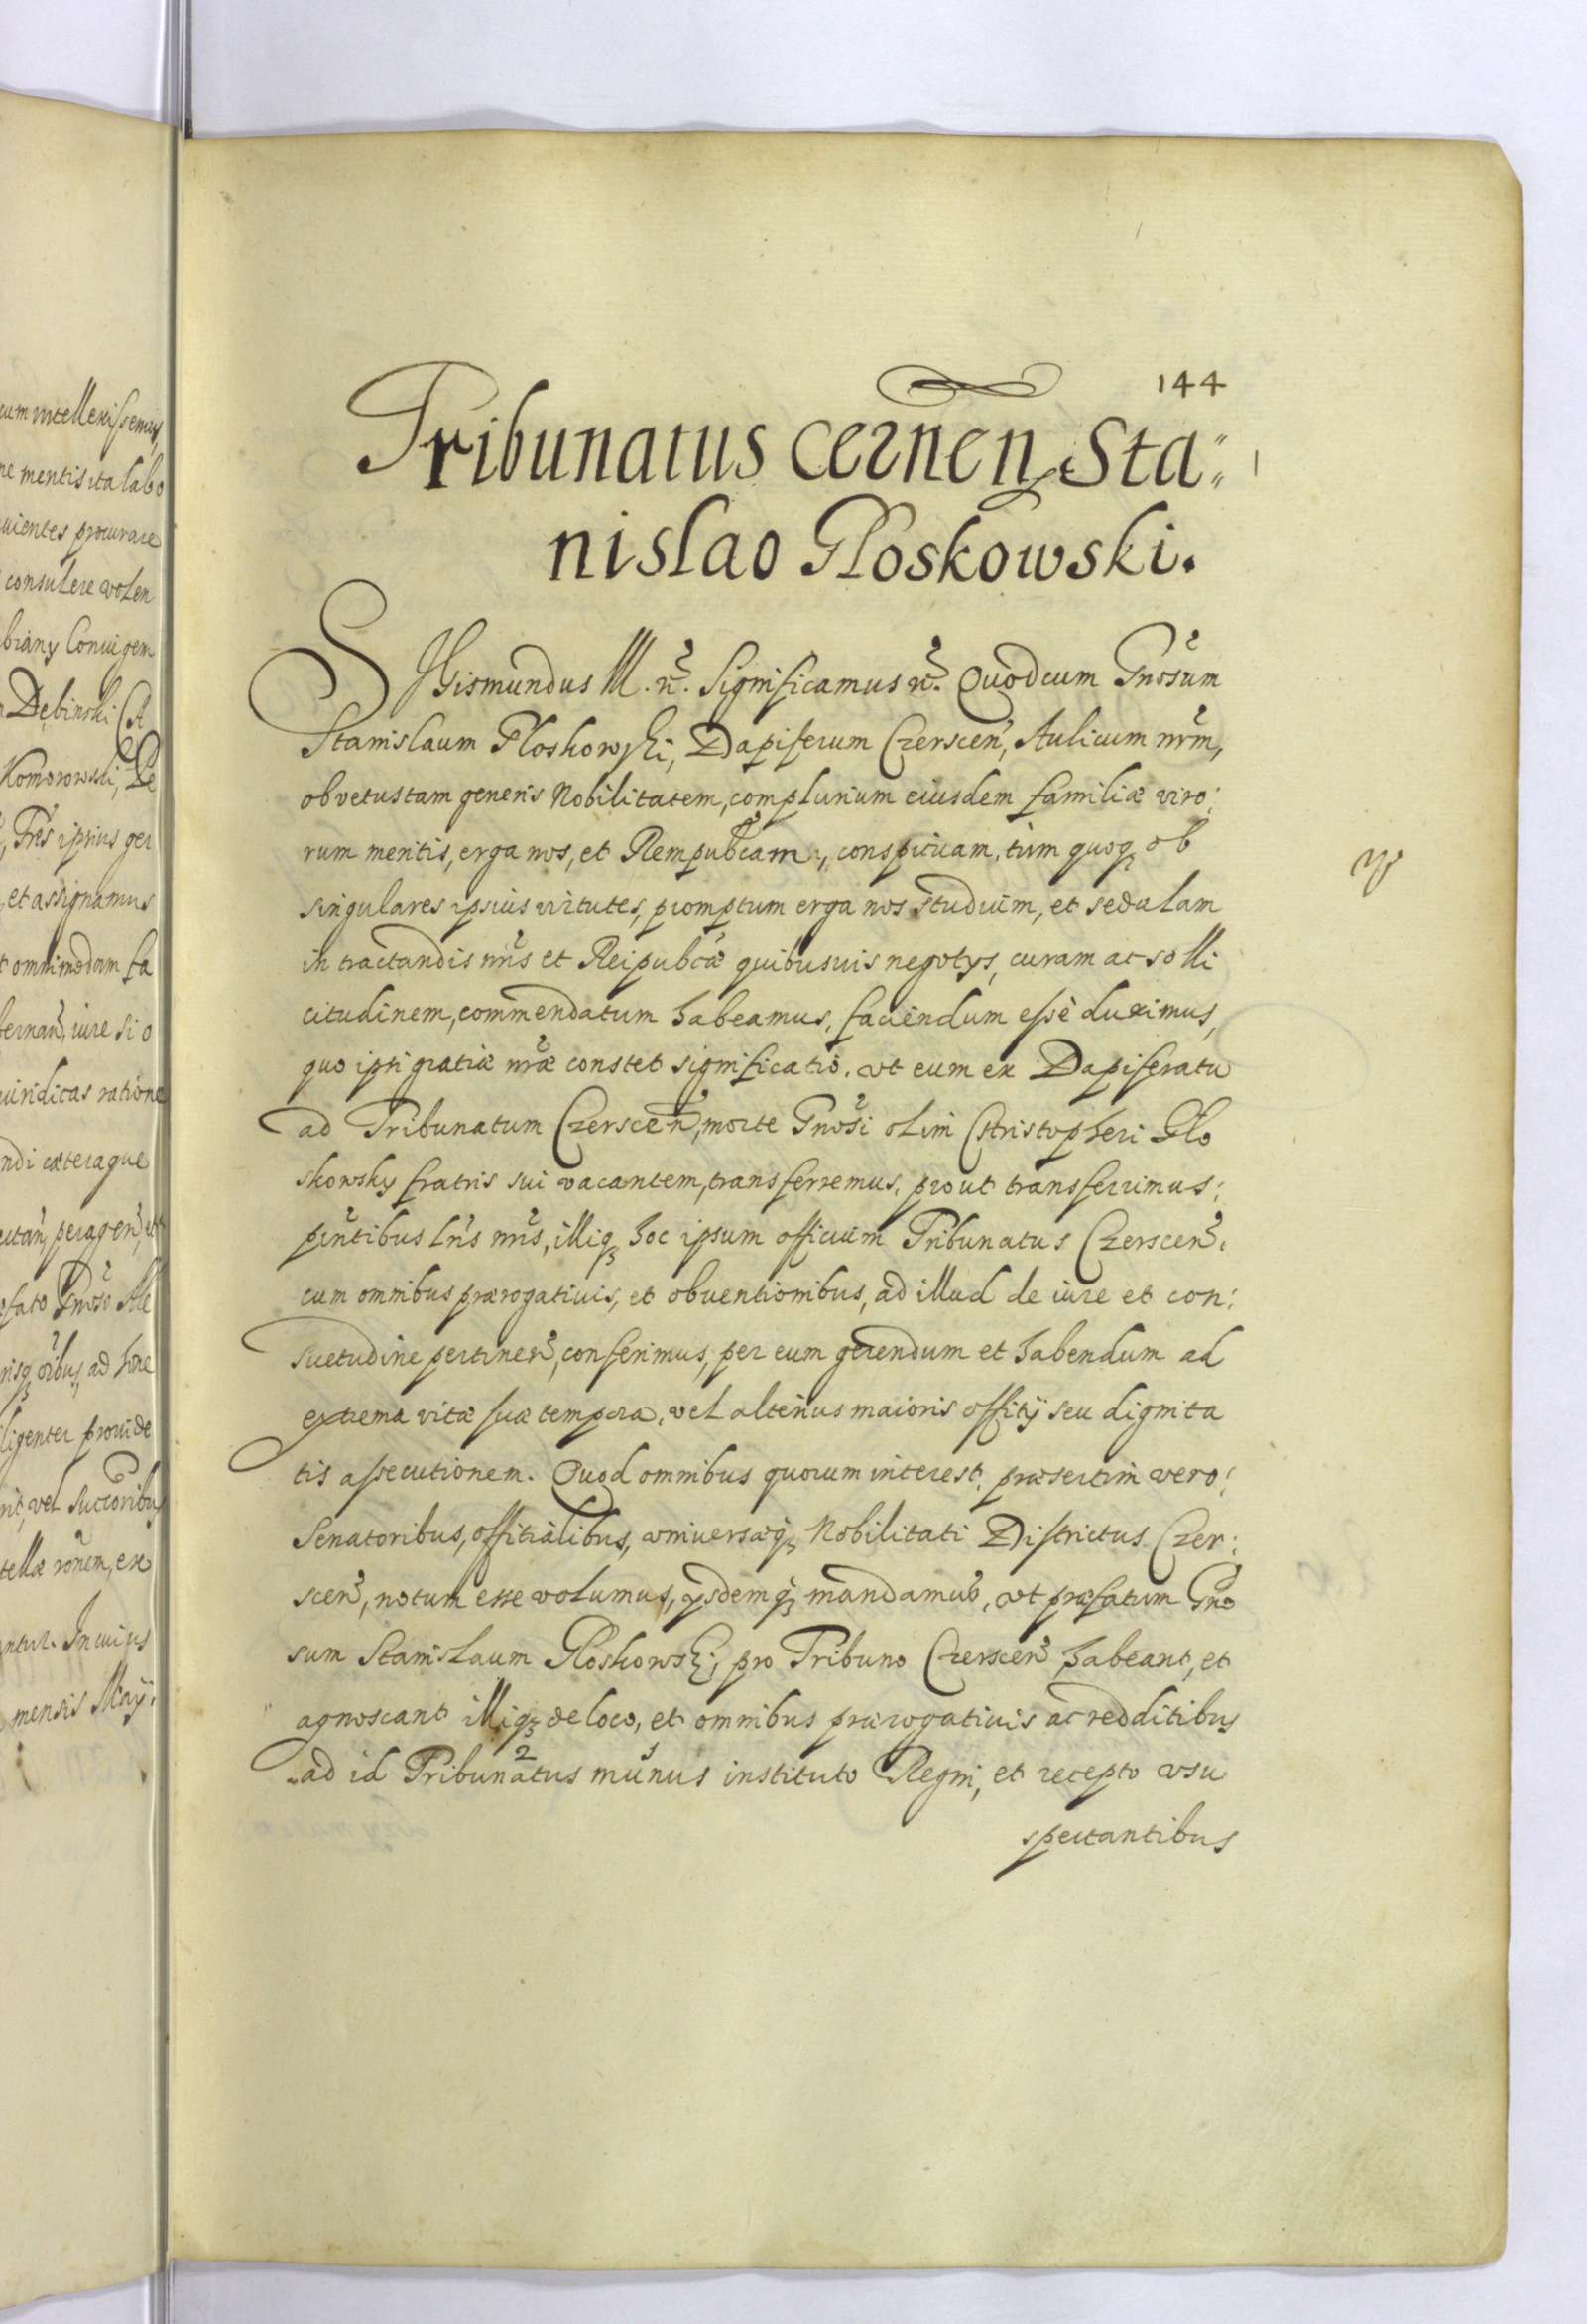 144
Tribunatus Cernen Sta„
nislao Gloskowski.
SJgismundus III. etc. Significamus etc. Quod cum Gnosum
Stanislaum Gloskowski, Dapiferum Czerscen, Aulicum nrm,
ob vetustam generis Nobilitatem, complurium eiusdem familiæ viro:
rum meritis, erga nos, et Rempubcam, conspicuam, tum quoq ob
singulares ipsius virtutes, promptum erga nos studium, et sedulam
in tractandis nris et Reipubcæ quibusuis negotys, curam ac solli
citudinem, commendatum habeamus, faciendum esse duximus,
quo ipsi gratiæ nræ constet significatio, vt eum ex Dapiferatu
ad Tribunatum Czerscen, morte Gnosi olim Christopheri Glo
skowsky fratris sui vacantem, transferremus, prout transferrimus:
pntibus lris nris, illiq hoc ipsum officium Tribunatus Czerscen.
cum omnibus prærogatiuis, et obuentionibus, ad illud de iure et con:
suetudine pertinen, conferimus, per eum gerendum et habendum ad
extrema vitæ suæ tempora, vel alterius maioris offitij seu dignita
tis assecutionem. Quod omnibus quorum interest, præsertim vero:
Senatoribus, offitialibus, vniuersæq Nobilitati Districtus Czer:
scen, notum esse volumus, ysdemq mandamus, vt præfatum Gno
sum Stanislaum Gloskowski, pro Tribuno Czerscen habeant, et
agnoscant illiq de loco, et omnibus prærogatiuis ac redditibus
ad id Tribunatus munus instituto Regni, et recepto vsu
spectantibus
cum intellexissemus,
ne mentis ita labo
uientes procurare
consulere volen
Dębinski
Komorowski, De
Fris ipsius ger
et assignamus
omnimodam fa
iure si o
iuridicas ratione
ndi cæteraque
peragen, et
fato Gnoso Ale
ad hære
ligenter prouide
vel Succoribus
tellæ ronem, ex
ntur. In cuius
mensis May.